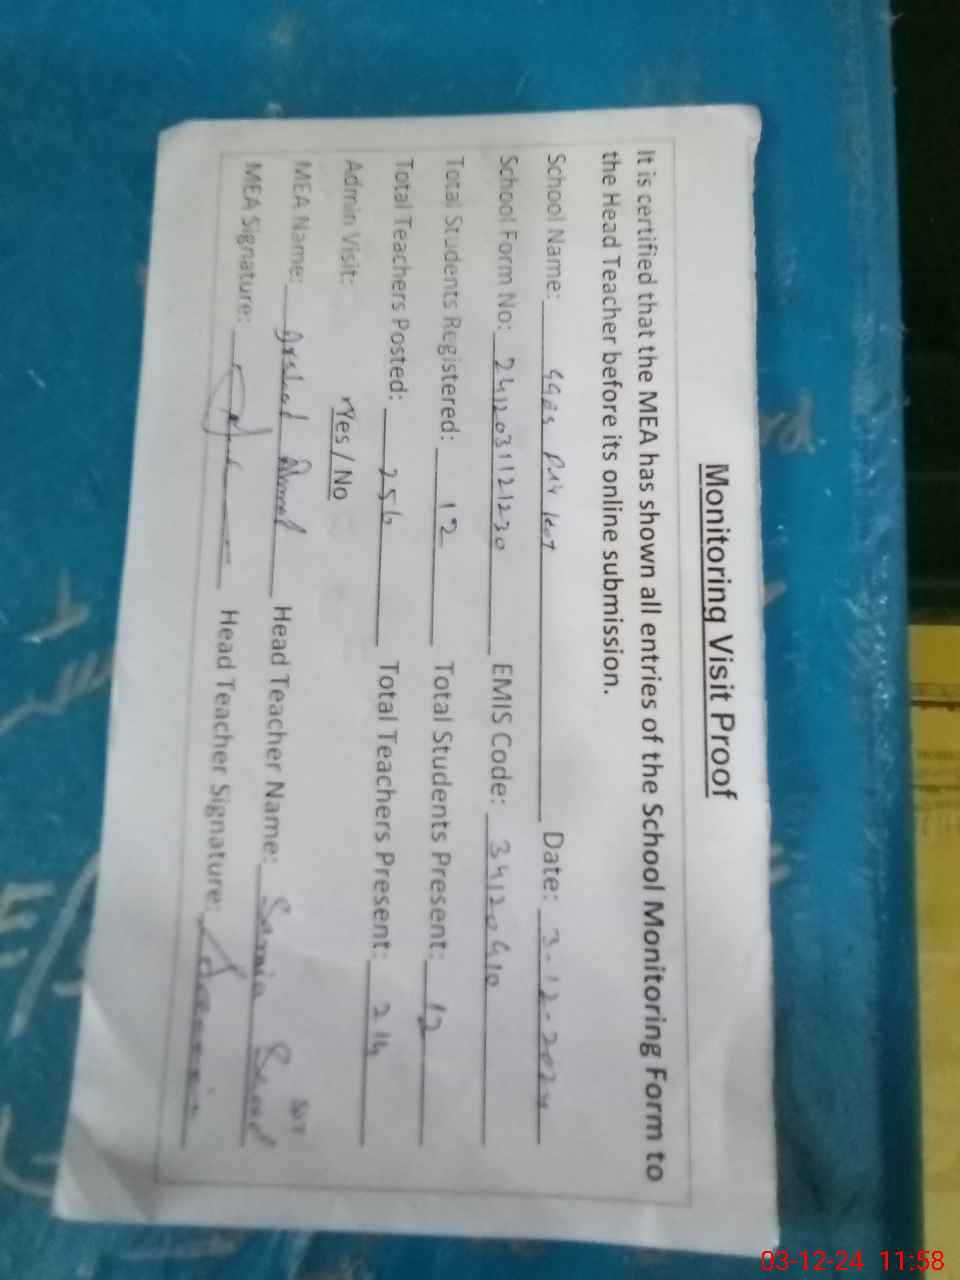 Monitoring Visit Proof
It is certified that the MEA has shown all entries of the School Monitoring Form to
the Head Teacher before its online submission.
School Name: Date: 3-12-2024
School Form No: 2412031121230 EMIS Code: 34120410
Total Students Registered: 12 Total Students Present: 12
Total Teachers Posted: 256 Total Teachers Present: 214
Admin Visit: Yes / No
MEA Name: Arshad Head Teacher Name: Samia
MEA Signature: Head Teacher Signature:
03-12-24 11:58